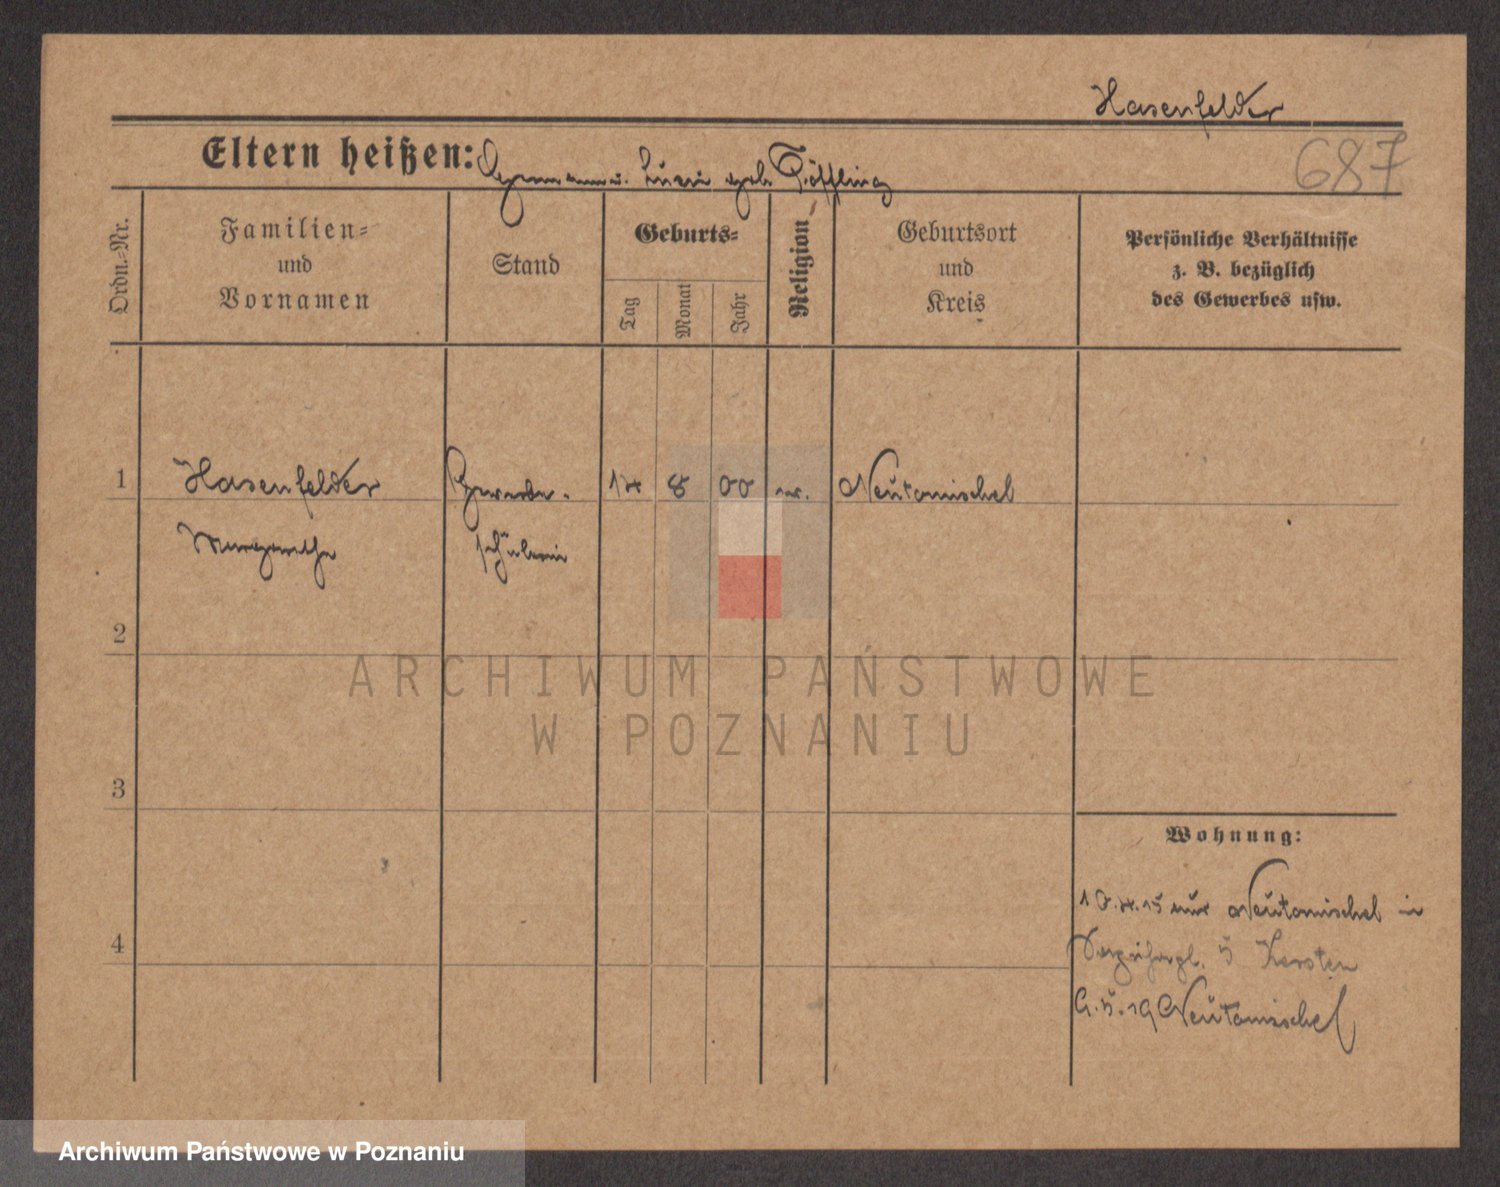 Hasenfelder
687
Eltern heißen: Hermann u. geb.
Ordn.=Nr.
Familien=
und
Vornamen
Stand
Geburts=
Tag
Monat
Jahr
Religion
Geburtsort
und
Kreis
Persönliche Verhältnisse
z. B. bezüglich
des Gewerbes usw.
1 Hasenfelder Gewerbe- 14 8 00 ev. Neutomischel
Margarethe schülerin
2
3
4
Wohnung:
10.4.15 aus Neutomischel in
5 Kersten
Neutomischel
ARCHIWUM PAŃSTWOWE
W POZNANIU
Archiwum Państwowe w Poznaniu